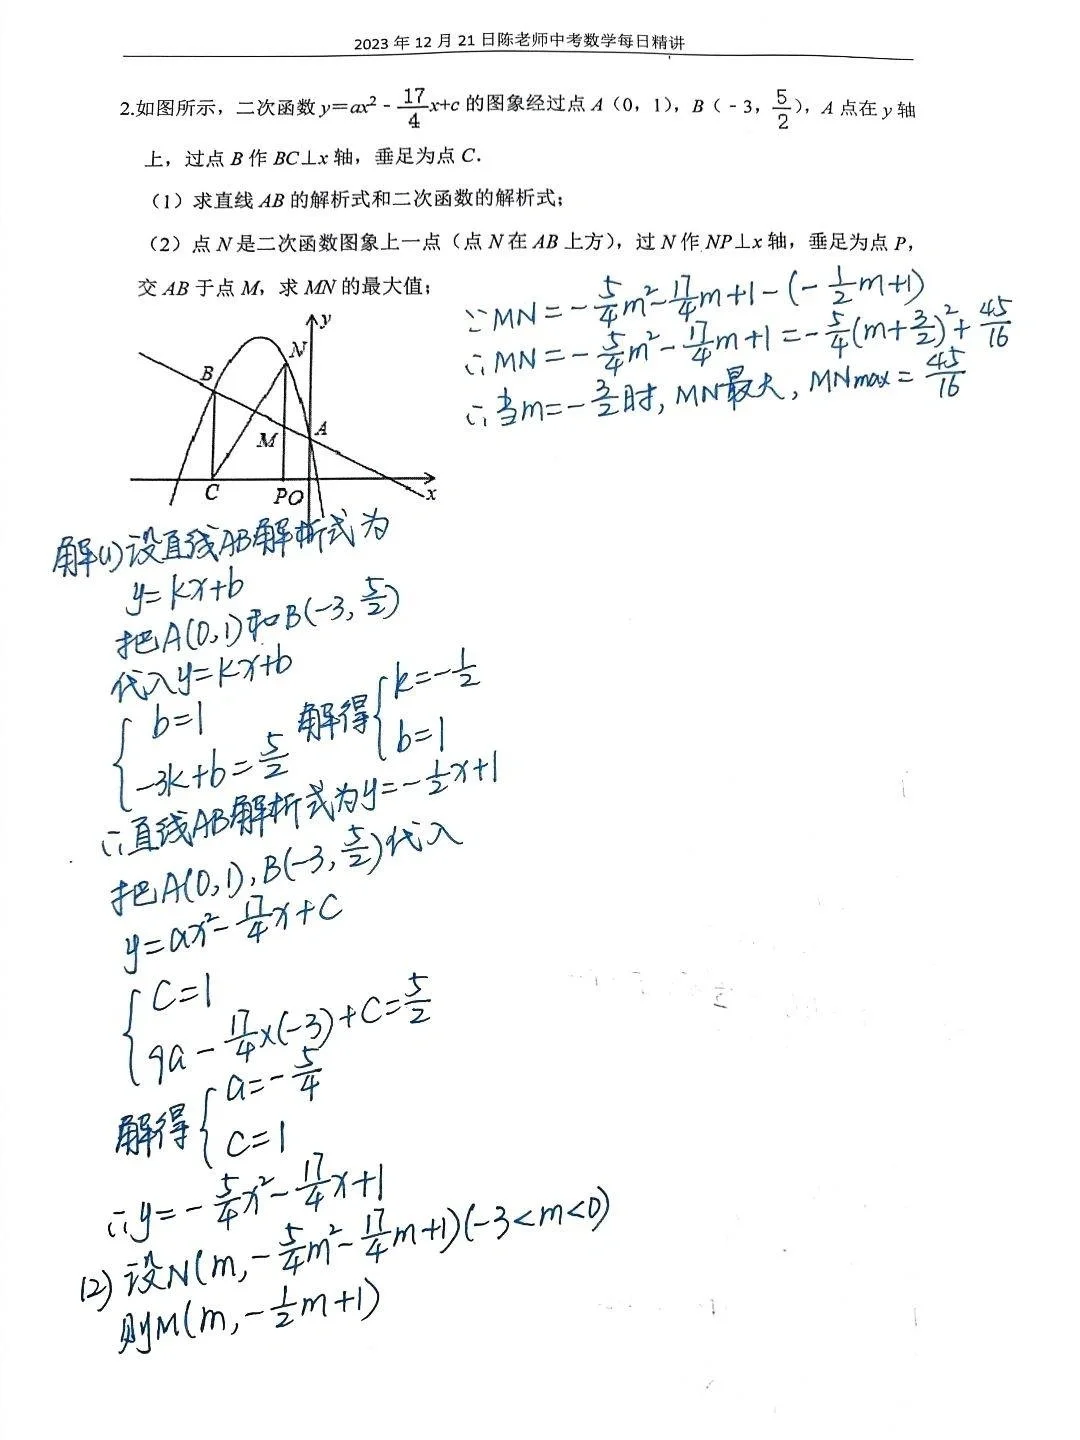 2023 年 12 月 21 日陈老师中考数学每日精讲
2.如图所示，二次函数 y＝ax² - 17/4 x+c 的图象经过点 A（0，1），B（ - 3，5/2），A 点在 y 轴
上，过点 B 作 BC⊥x 轴，垂足为点 C．
（1）求直线 AB 的解析式和二次函数的解析式；
（2）点 N 是二次函数图象上一点（点 N 在 AB 上方），过 N 作 NP⊥x 轴，垂足为点 P，
交 AB 于点 M，求 MN 的最大值；
∵MN=-5/4m²-17/4m+1-(-1/2m+1)
∴MN=-5/4m²-17/4m+1=-5/4(m+3/2)²+45/16
∴当m=-3/2时,MN最大,MNmax=45/16
y
N
B
M
A
C
P
O
x
解(1)设直线AB解析式为
y=kx+b
把A(0,1)和B(-3,5/2)
代入y=kx+b
{b=1
-3k+b=5/2
解得{k=-1/2
b=1
∴直线AB解析式为y=-1/2x+1
把A(0,1),B(-3,5/2)代入
y=ax²-17/4x+C
{C=1
9a-17/4×(-3)+C=5/2
解得{a=-5/4
C=1
∴y=-5/4x²-17/4x+1
(2)设N(m,-5/4m²-17/4m+1)(-3<m<0)
则M(m,-1/2m+1)